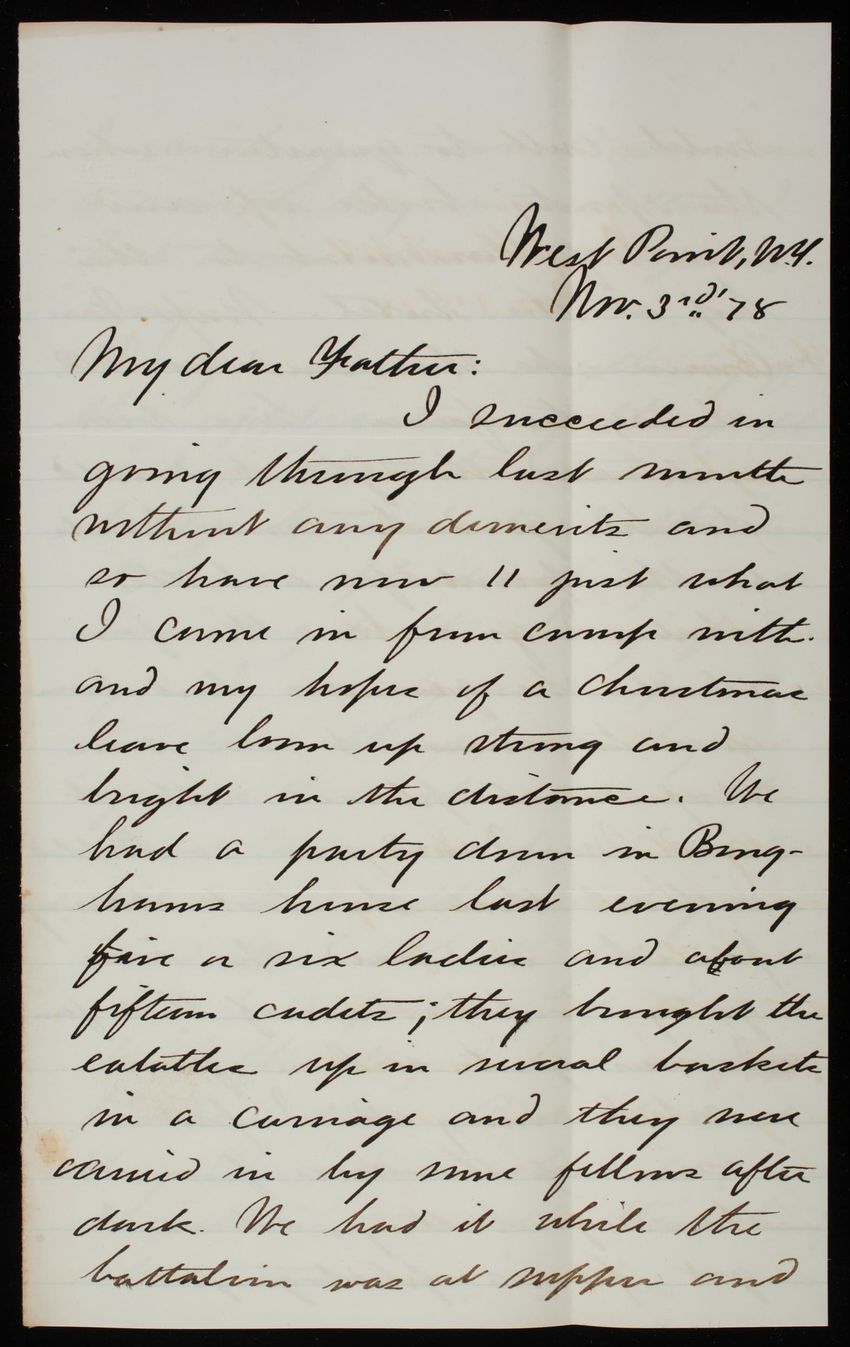 West Point, N.Y.
Nov. 3rd, 78
My dear Father:
I succeeded in
going through last month
without any demerits and
so have now 11 just what
I came in from camp with.
and my hopes of a Christmas
leave loom up strong and
bright in the distance. We
had a party down in Bing-
hams house last evening
five or six ladies and about
fifteen cadets; they brought the
eatables up in several baskets
in a carriage and they were
carried in by some fellows after
dark. We had it while the
battalion was at supper and